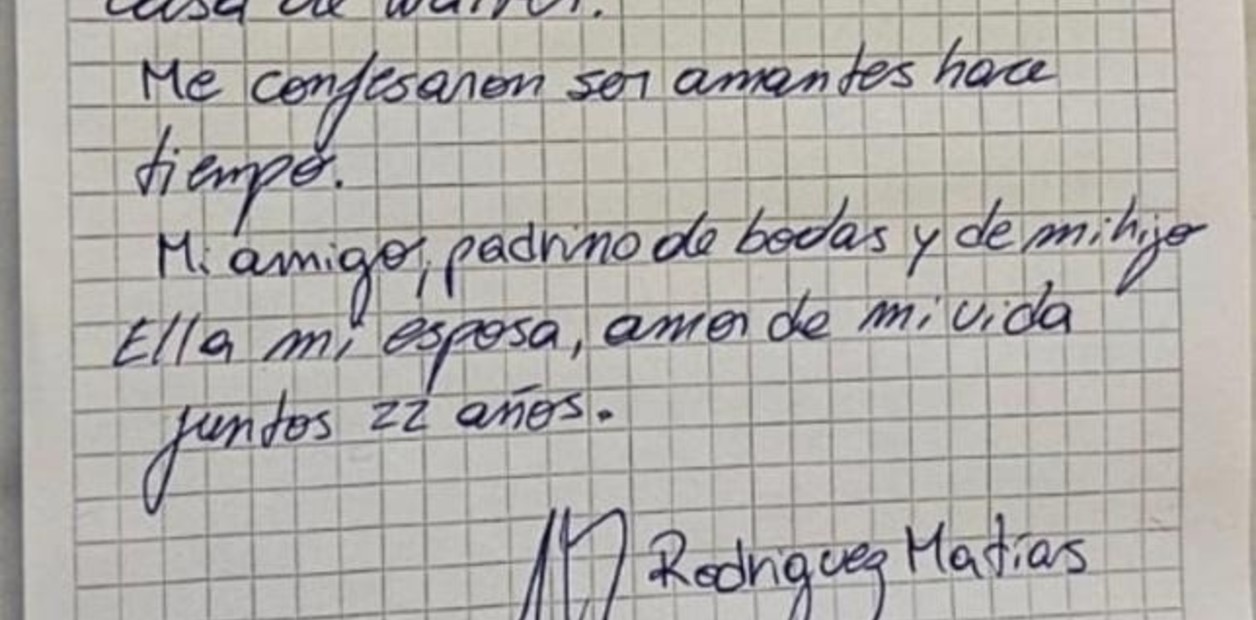 casa de
Me confesaron ser amantes hace
tiempo.
Mi amigo, padrino de bodas y de mi hijo
Ella mi esposa, amor de mi vida
juntos 22 años.
Rodriguez Matías